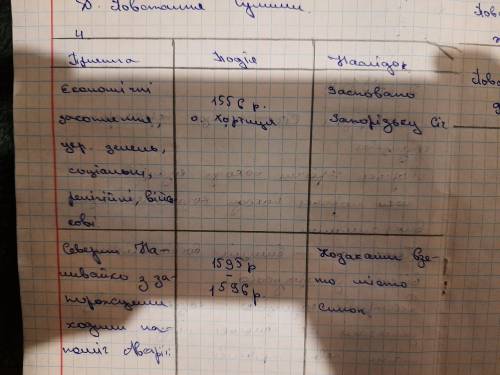 Д. Повстання Сулими.
4.
Причина Подія Наслідок
Економічні
засолення,
цер. земель,
соціальні,
релігійні, війсь
кові
1556 р.
о. Хортиця
Засновано
Запорізьку Січ
Северин На-
ливайко з за-
порожцями
ходили на
1595 р
–
1596 р.
Козаками взя-
то місто
Пов
Пов